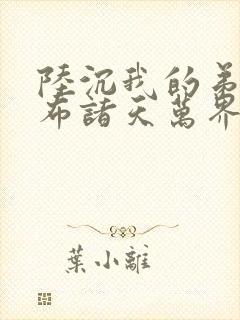 陸沉我的弟
布諸天萬界
葉小離